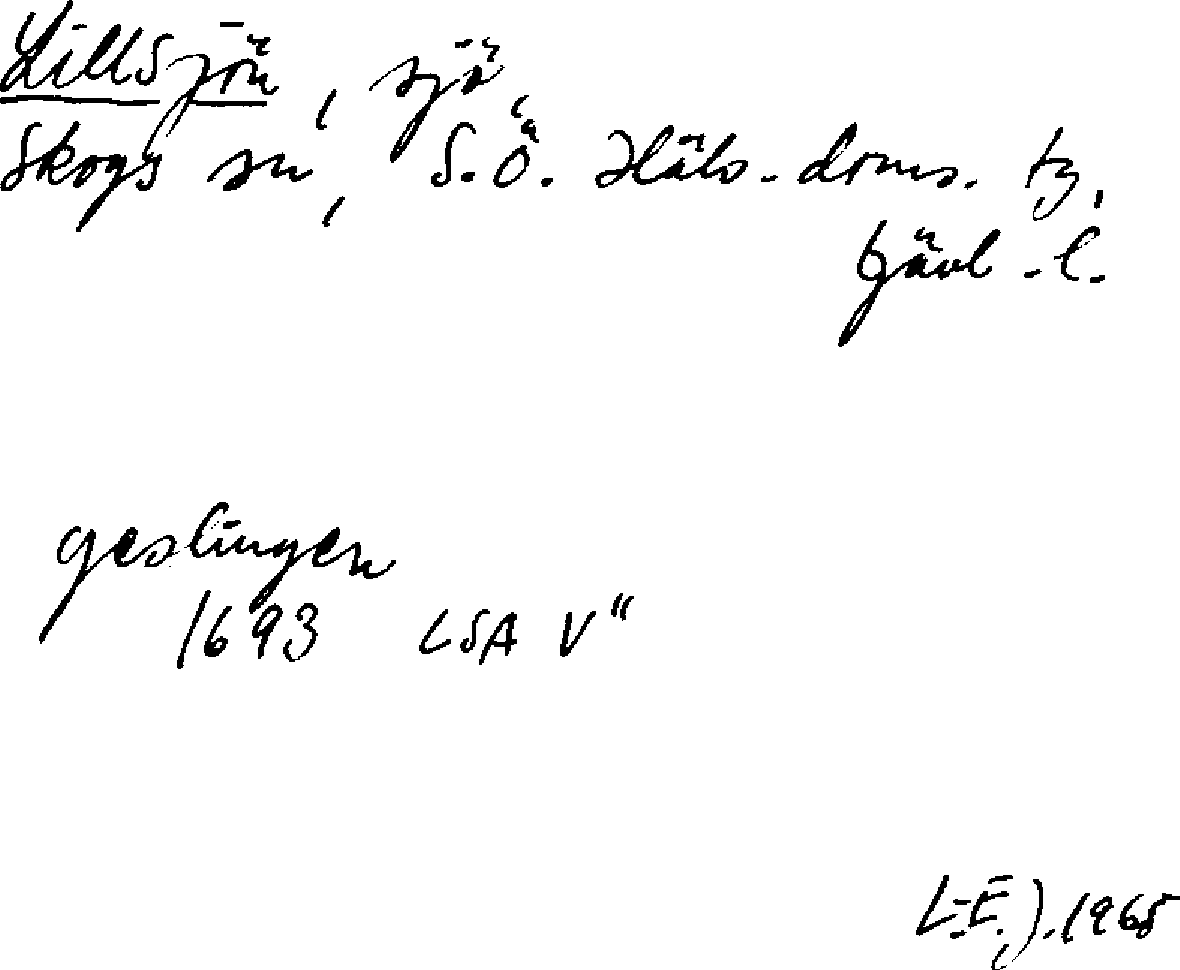 Lillsjön, sjö,
Skogs sn, S.Ö. Häls. doms. tg,
Gävl.l.
geslingen
1693 LSA V"
L.E.J. 1965